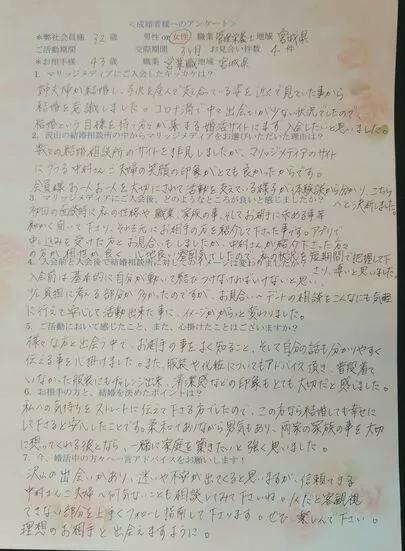 ＜成婚者様へのアンケート＞
＊弊社会員様 32歳 男性 or 女性 職業 管理栄養士 地域 宮城県
ご活動期間 交際期間 3ヶ月 お見合い件数 4件
＊お相手様 43歳 職業 営業職 地域 宮城県
1. マリッジメディアにご入会したキッカケは？
姉夫婦が結婚し、子供を産んで支え合っている姿を近くで見ていた事から
結婚を意識しました。コロナ渦で中々出会いが少ない状況でしたので、
結婚という目標を持った方が集まる婚活サイトにまず入会したいと思いました。
2. 沢山の結婚相談所の中からマリッジメディアをお選びいただいた理由は？
数々の結婚相談所のサイトを拝見しましたが、マリッジメディアのサイト
にうつる中村さんご夫婦の笑顔の印象がとても良かったからです。
会員様お一人お一人を大切にされて活動を支えている様子が体験談から分かり、こちら
へと決断しました。
3. マリッジメディアにご入会後、どのようなところが良いと感じましたか？
初回の面談時に私の性格や職業、家族の事、そしてお相手に求める事等
細かく聞いて下さり、それを元にお相手の方を紹介して下さった事です。アプリで
申し込みを受けた方ともお見合いもしましたが、中村さんが紹介下さった方々
の方が相性が良く、心地良い雰囲気でしたので、私の状況を短期間で把握して下
さり、凄いと思いました。
4. 入会前と入会後で結婚相談所に対してのイメージは変わりましたか？
入会前は基本的に自分が動いて結びつけなければいけないと思い、
少し負担に考える部分が多かったのですが、お見合い〜デートの相談をこんなにも気軽
に行えて楽しくして活動出来た事に、イメージがガラッと変わりました。
5. ご活動において感じたこと、また、心掛けたことはございますか？
様々な方と出会う中で、お相手の事をよく知ること、そして自分の話も分かりやすく
伝える事を心掛けました。また、服装や化粧についてもアドバイス頂き、普段着て
いなかった服装にもチャレンジ出来、清潔感などの印象もとても大切だと感じました。
6. お相手の方と、結婚を決めたポイントは？
私への気持ちをストレートに伝えて下さる方でしたので、この方なら結婚しても幸せに
して下さると安心したことです。柔和でありながら男気もあり、両家の家族の事を大切
に想ってくれる彼となら、一緒に家庭を築きたいと強く思いました。
7. 今、婚活中の方々へ一言アドバイスをお願いします！
沢山の出会いがあり、迷いや不安が出てくると思いますが、信頼できる
中村さんご夫婦へ何気ないことも相談してみて下さいね。1人だと客観視
できない部分を上手くフォローし指摘して下さいます。ぜひ、楽しんで下さい。
理想のお相手と出会えますように。